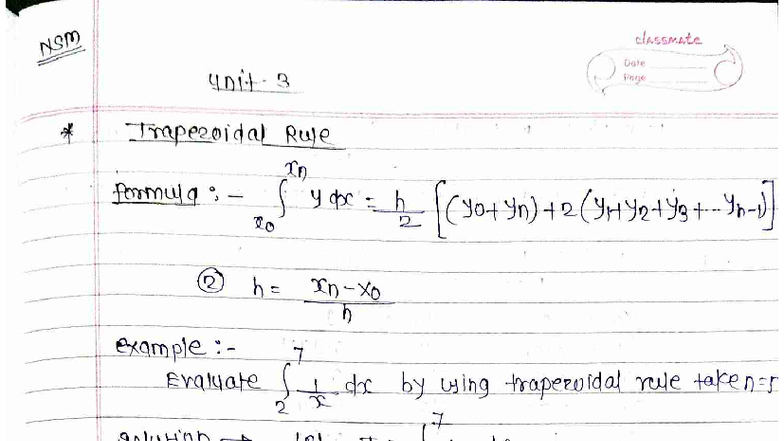 NSM
classmate
Date
Page
Unit - 3
* Trapezoidal Rule
formula :- ∫ₓ₀^xn y dx = h/2 [(y0+yn)+2(y1+y2+y3+...yn-1)]
② h = xn-x0/n
example :-
Evaluate ∫₂^7 1/x dx by using trapezoidal rule take n=5
solution → let